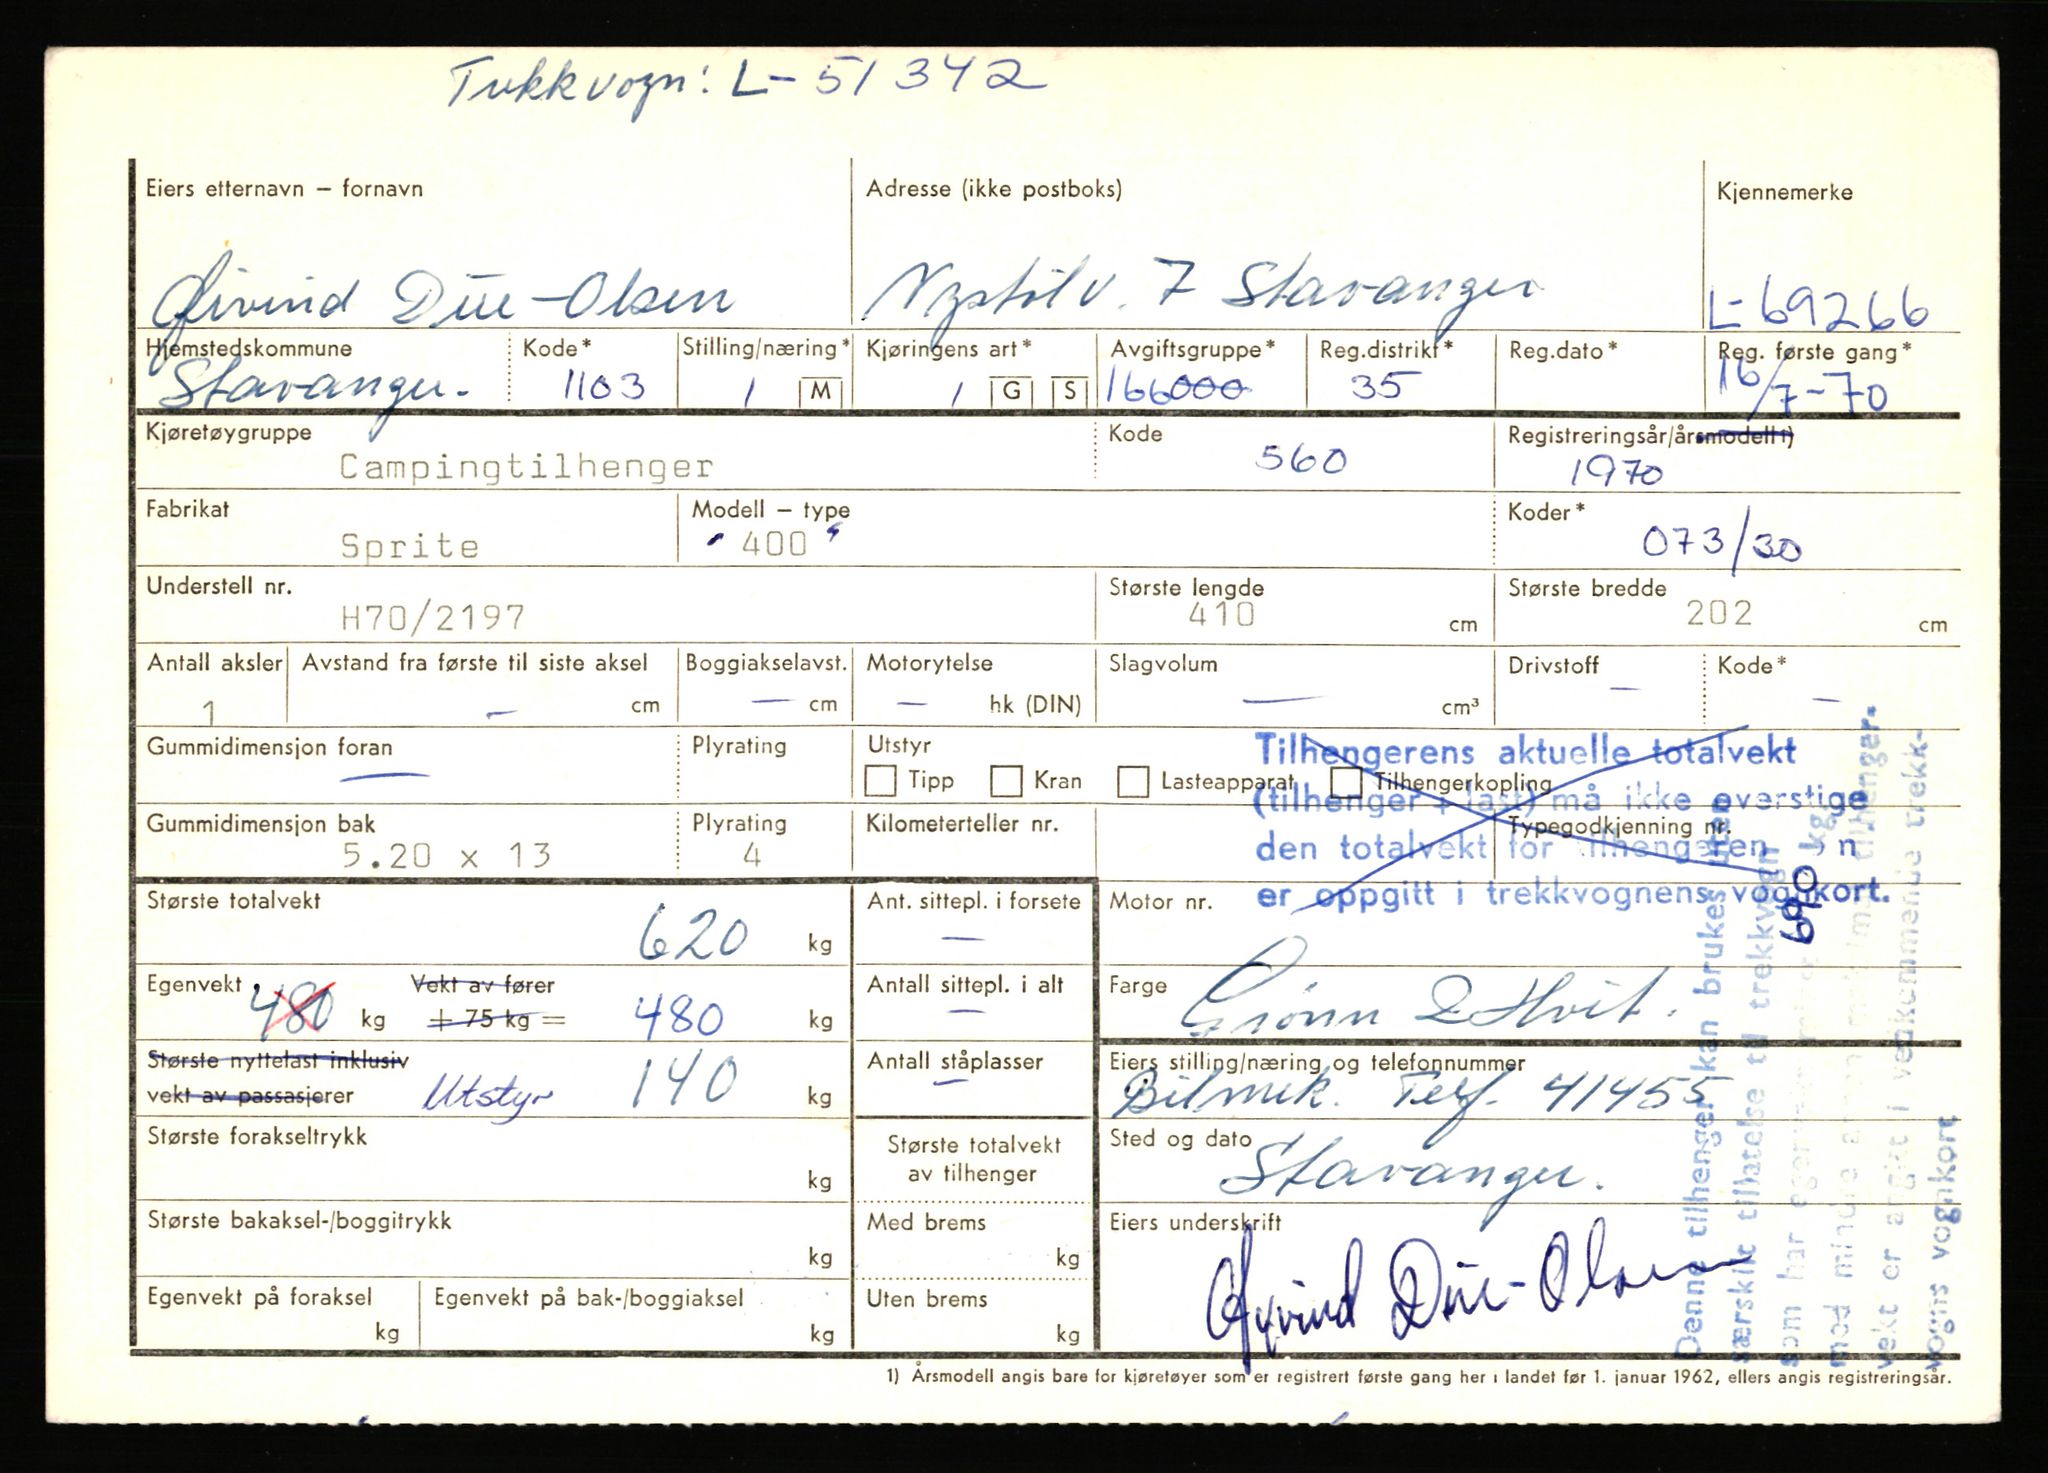 Trekkvogn: L-51342
Eiers etternavn – fornavn
Adresse (ikke postboks)
Kjennemerke
Øivind Due-Olsen
Nystølv. 7 Stavanger
L-69266
Hjemstedskommune Kode* Stilling/næring* Kjøringens art* Avgiftsgruppe* Reg.distrikt* Reg.dato* Reg. første gang*
Stavanger. 1103 1 M 1 G S 166000 35 16/7-70
Kjøretøygruppe Kode Registreringsår/årsmodell 1)
Campingtilhenger 560 1970
Fabrikat Modell – type Koder*
Sprite "400" 073/30
Understell nr. Største lengde Største bredde
H70/2197 410 cm 202 cm
Antall aksler Avstand fra første til siste aksel Boggiakselavst. Motorytelse Slagvolum Drivstoff Kode*
1 – cm – cm – hk (DIN) – cm³ – –
Gummidimensjon foran Plyrating Utstyr
— Tipp Kran Lasteapparat Tilhengerkopling
Gummidimensjon bak Plyrating Kilometerteller nr. Typegodkjenning nr.
5.20 x 13 4
Tilhengerens aktuelle totalvekt
(tilhenger + last) må ikke overstige
den totalvekt for tilhengeren som
er oppgitt i trekkvognens vognkort.
Største totalvekt 620 kg Ant. sittepl. i forsete — Motor nr.
Egenvekt 480 kg Vekt av fører + 75 kg = 480 kg Antall sittepl. i alt — Farge Grønn & Hvit.
Største nyttelast inklusiv
vekt av passasjerer Utstyr 140 kg Antall ståplasser – Eiers stilling/næring og telefonnummer
Bilmek. Telf. 41455
Største forakseltrykk kg Største totalvekt
av tilhenger Sted og dato Stavanger.
Største bakaksel-/boggitrykk kg Med brems kg Eiers underskrift
Øyvind Due-Olsen
Egenvekt på foraksel kg Egenvekt på bak-/boggiaksel kg Uten brems kg
Denne tilhenger kan brukes uten
særskilt tillatelse til trekkvogn
som har egenvekt minst 690 kg.
med mindre annen maksimal tilhenger-
vekt er angitt i vedkommende trekk-
vogns vognkort
1) Årsmodell angis bare for kjøretøyer som er registrert første gang her i landet før 1. januar 1962, ellers angis registreringsår.